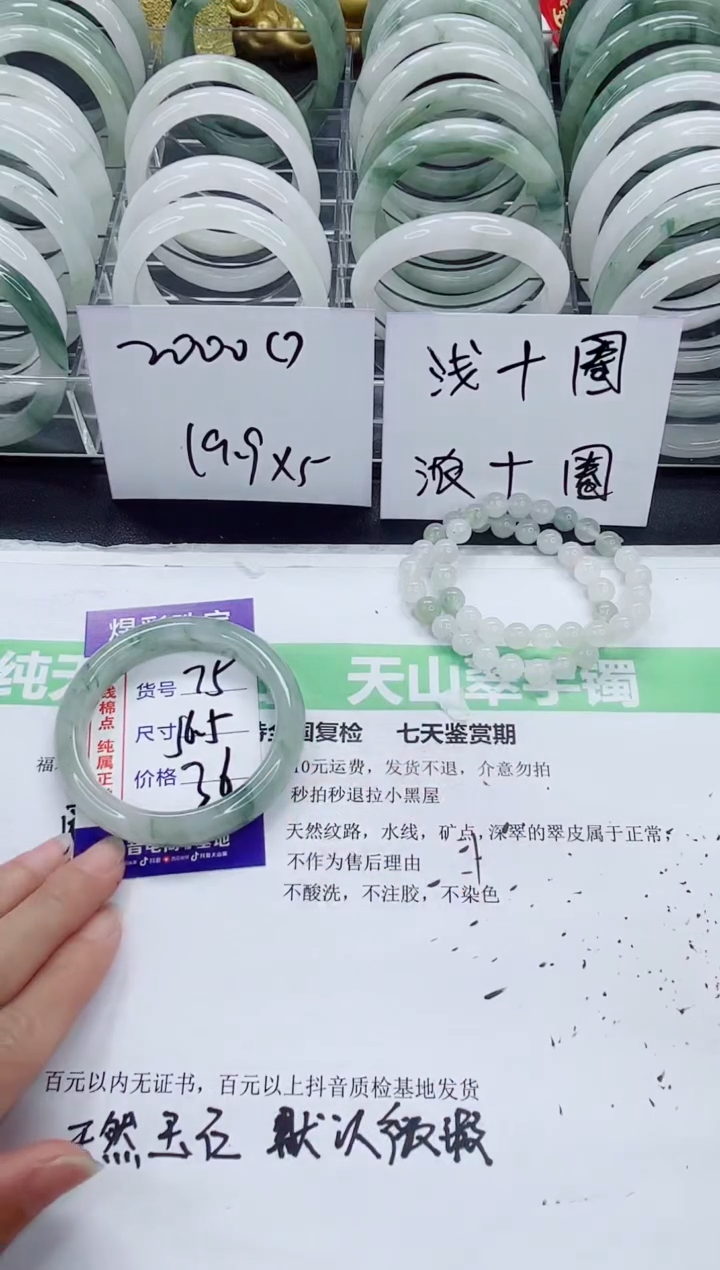 2000口
19.9×5
浅十圈
派十圈
货号 75
尺寸 56.5
价格 36
线棉点 纯属正
纯天
天山翠手镯
国复检 七天鉴赏期
10元运费，发货不退，介意勿拍
秒拍秒退拉小黑屋
天然纹路，水线，矿点，深翠的翠皮属于正常，
不作为售后理由
不酸洗，不注胶，不染色
百元以内无证书，百元以上抖音质检基地发货
天然玉石 默认微瑕